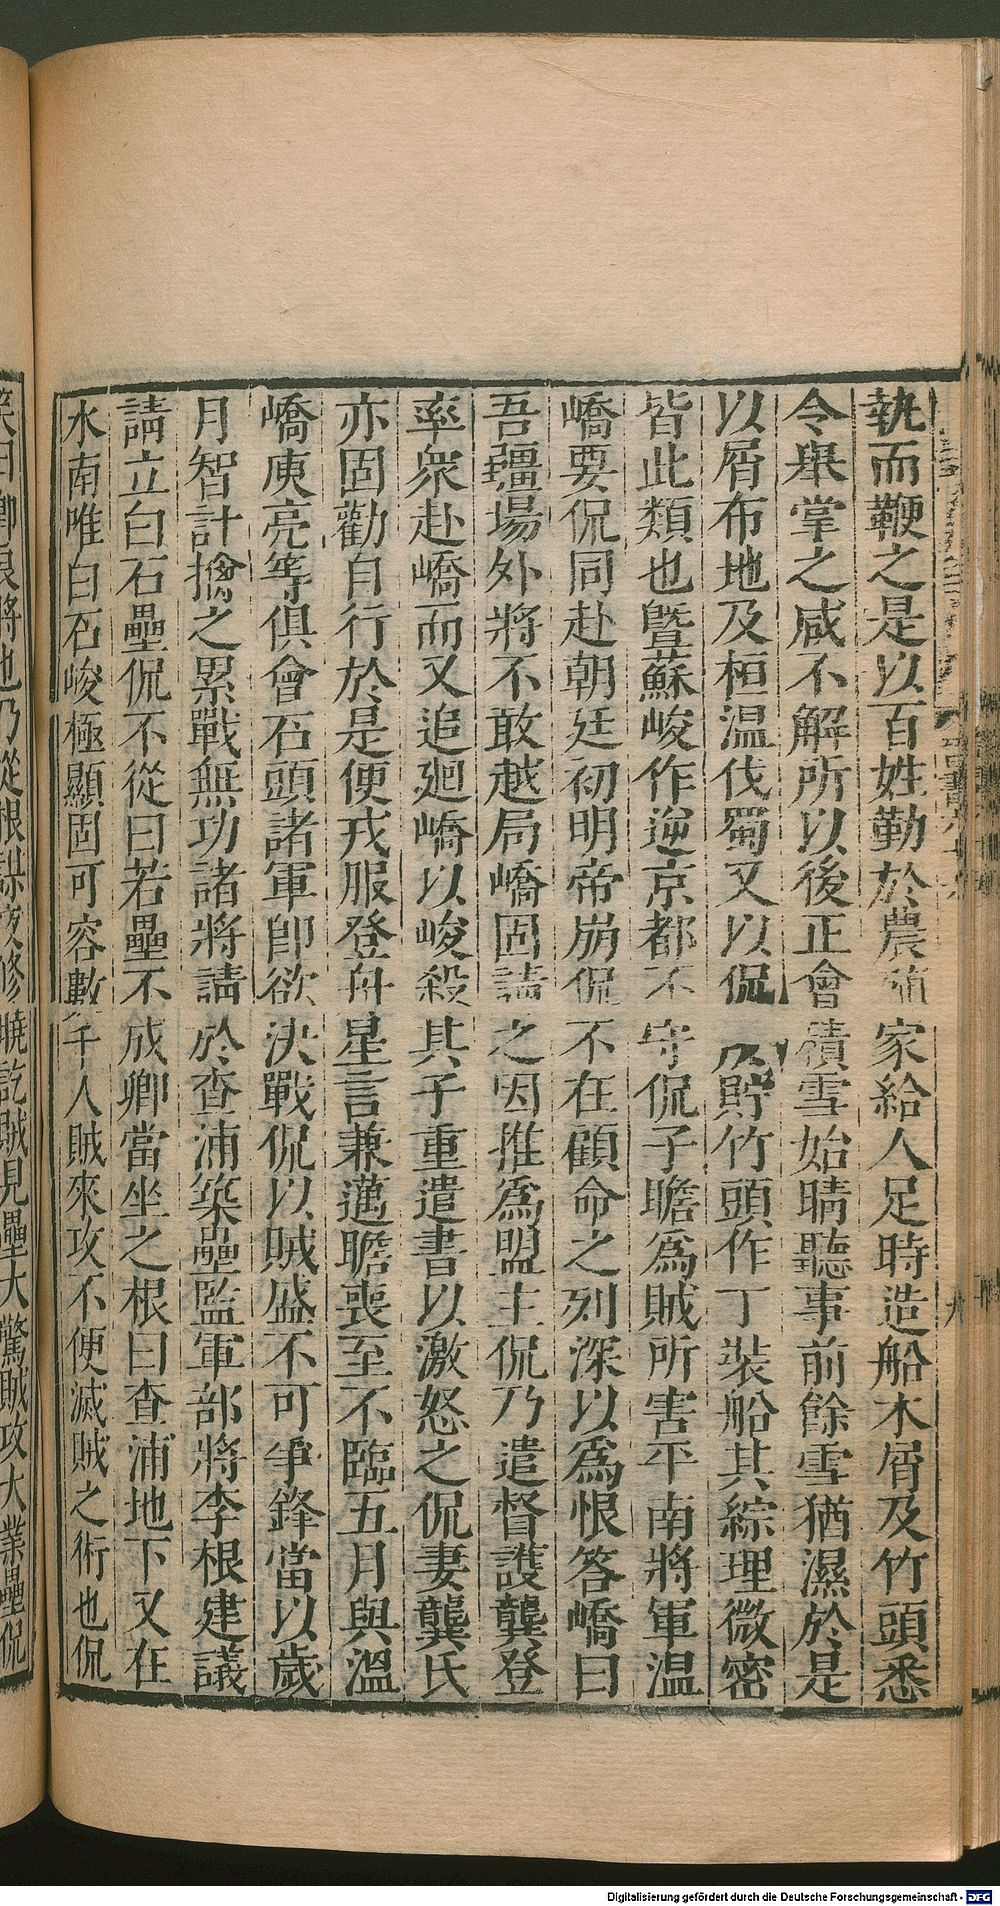 執而鞭之是以百姓勤於農殖家給人足時造船木屑及竹頭悉
令舉掌之咸不解所以後正會積雪始晴聽事前餘雪猶濕於是
以屑布地及桓温伐蜀又以侃所貯竹頭作丁裝船其綜理微密
皆此類也曁蘇峻作逆京都不守侃子瞻爲賊所害平南將軍温
嶠要侃同赴朝廷初明帝崩侃不在顧命之列深以爲恨答嶠曰
吾疆場外將不敢越局嶠固請之因推爲盟主侃乃遣督護龔登
率衆赴嶠而又追廻嶠以峻殺其子重遣書以激怒之侃妻龔氏
亦固勸自行於是便戎服登舟星言兼邁瞻喪至不臨五月與温
嶠庾亮等俱會石頭諸軍卽欲決戰侃以賊盛不可爭鋒當以歲
月智計擒之累戰無功諸將請於查浦築壘監軍部將李根建議
請立白石壘侃不從曰若壘不成卿當坐之根曰查浦地下又在
水南唯白石峻極顯固可容數千人賊來攻不便滅賊之術也侃
笑曰卿良將也乃從根謀夜修曉訖賊見壘大驚賊攻大業壘侃
Digitalisierung gefördert durch die Deutsche Forschungsgemeinschaft - DFG